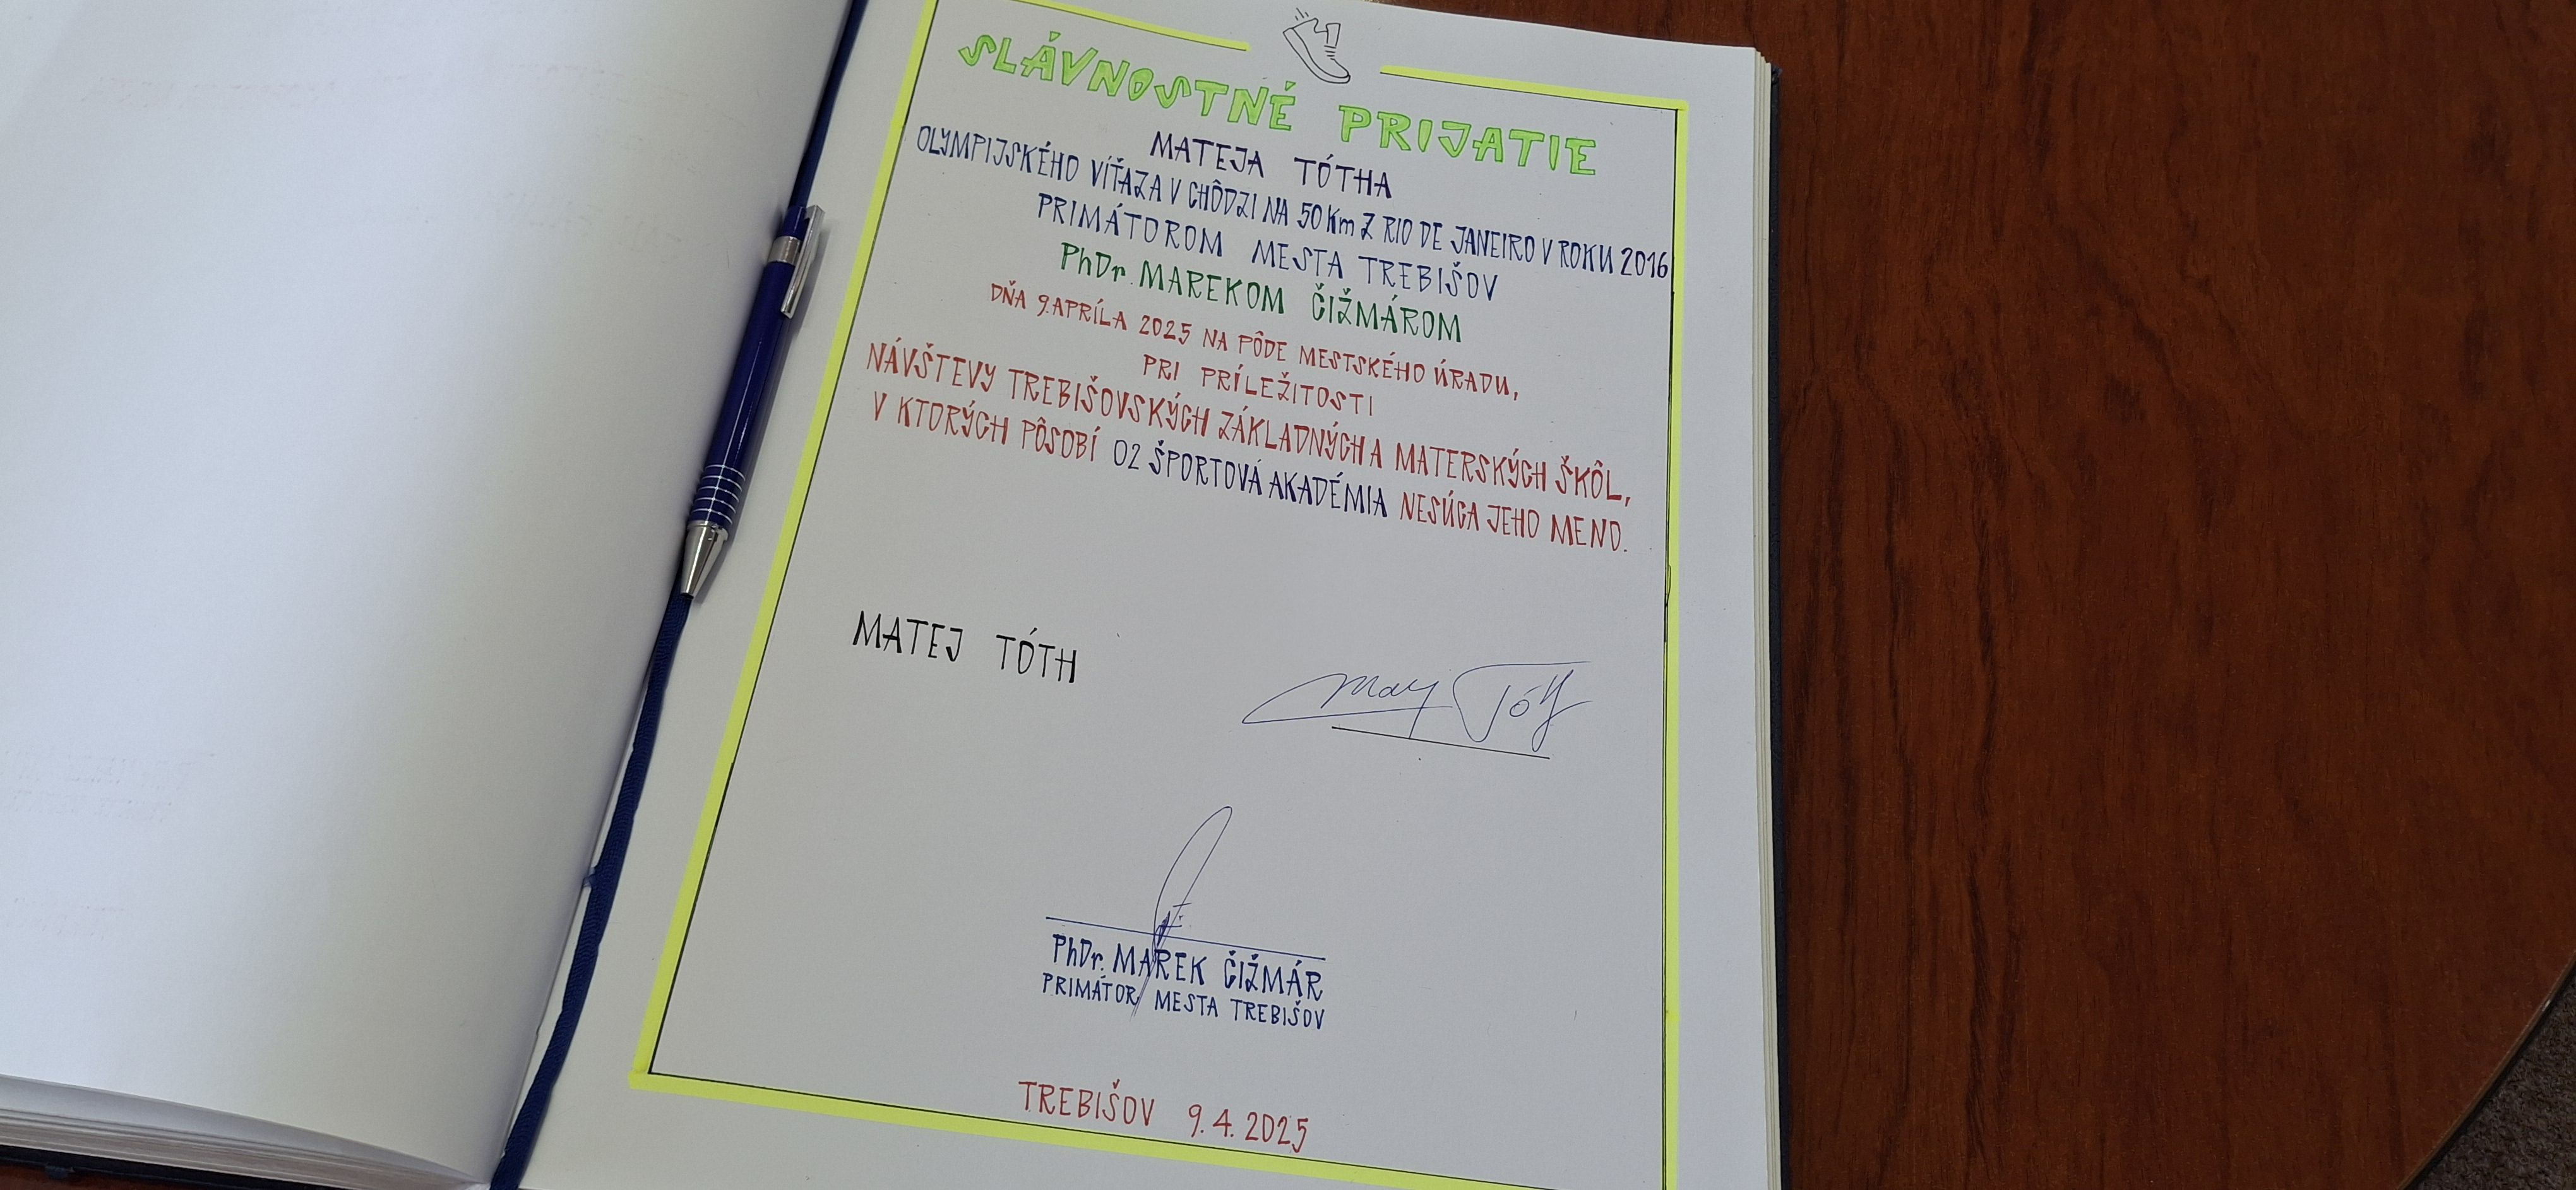 SLÁVNOSTNÉ PRIJATIE
MATEJA TÓTHA
OLYMPIJSKÉHO VÍŤAZA V CHÔDZI NA 50 Km Z RIO DE JANEIRO V ROKU 2016
PRIMÁTOROM MESTA TREBIŠOV
PhDr. MAREKOM ČIŽMÁROM
DŇA 9. APRÍLA 2025 NA PÔDE MESTSKÉHO ÚRADU,
PRI PRÍLEŽITOSTI
NÁVŠTEVY TREBIŠOVSKÝCH ZÁKLADNÝCH A MATERSKÝCH ŠKÔL,
V KTORÝCH PÔSOBÍ O2 ŠPORTOVÁ AKADÉMIA NESÚCA JEHO MENO.
MATEJ TÓTH
PhDr. MAREK ČIŽMÁR
PRIMÁTOR MESTA TREBIŠOV
TREBIŠOV 9. 4. 2025